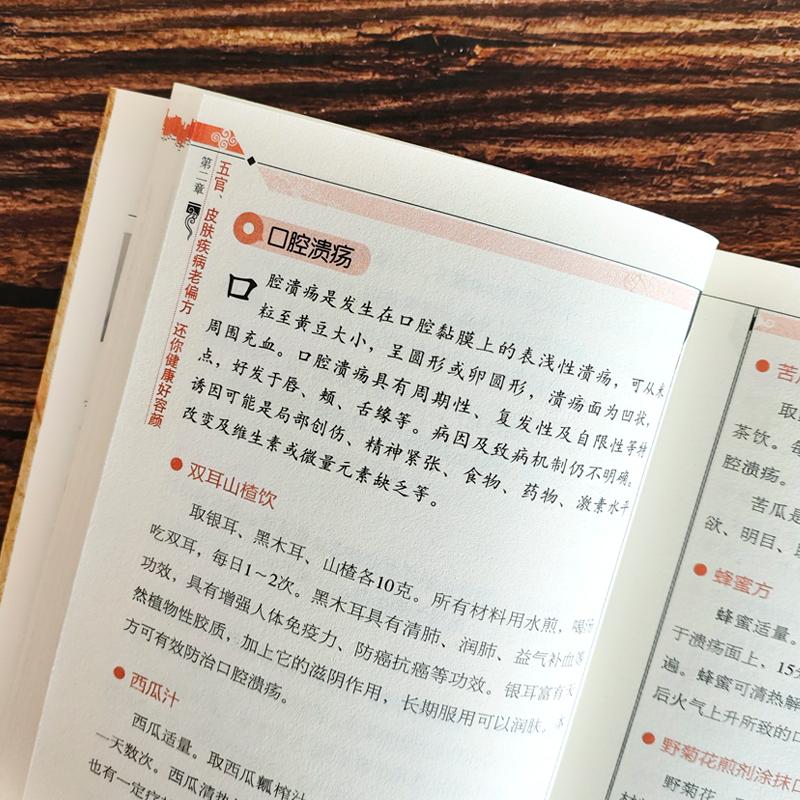 第二章
五官、皮肤疾病老偏方 还你健康好容颜
口腔溃疡
口腔溃疡是发生在口腔黏膜上的表浅性溃疡，可从米
粒至黄豆大小，呈圆形或卵圆形，溃疡面为凹状，
周围充血。口腔溃疡具有周期性、复发性及自限性等特
点，好发于唇、颊、舌缘等。病因及致病机制仍不明确。
诱因可能是局部创伤、精神紧张、食物、药物、激素水平
改变及维生素或微量元素缺乏等。
双耳山楂饮
取银耳、黑木耳、山楂各10克。所有材料用水煎，喝汤
吃双耳，每日1～2次。黑木耳具有清肺、润肺、益气补血等
功效，具有增强人体免疫力、防癌抗癌等功效。银耳富有天
然植物性胶质，加上它的滋阴作用，长期服用可以润肤，
方可有效防治口腔溃疡。
西瓜汁
西瓜适量。取西瓜瓤榨汁
一天数次。西瓜清热
也有一定疗
苦
取
茶饮。每
腔溃疡。
苦瓜是
欲、明目、
蜂蜜方
蜂蜜适量。
于溃疡面上，15
遍。蜂蜜可清热解
后火气上升所致的口
野菊花煎剂涂抹口
野菊花、